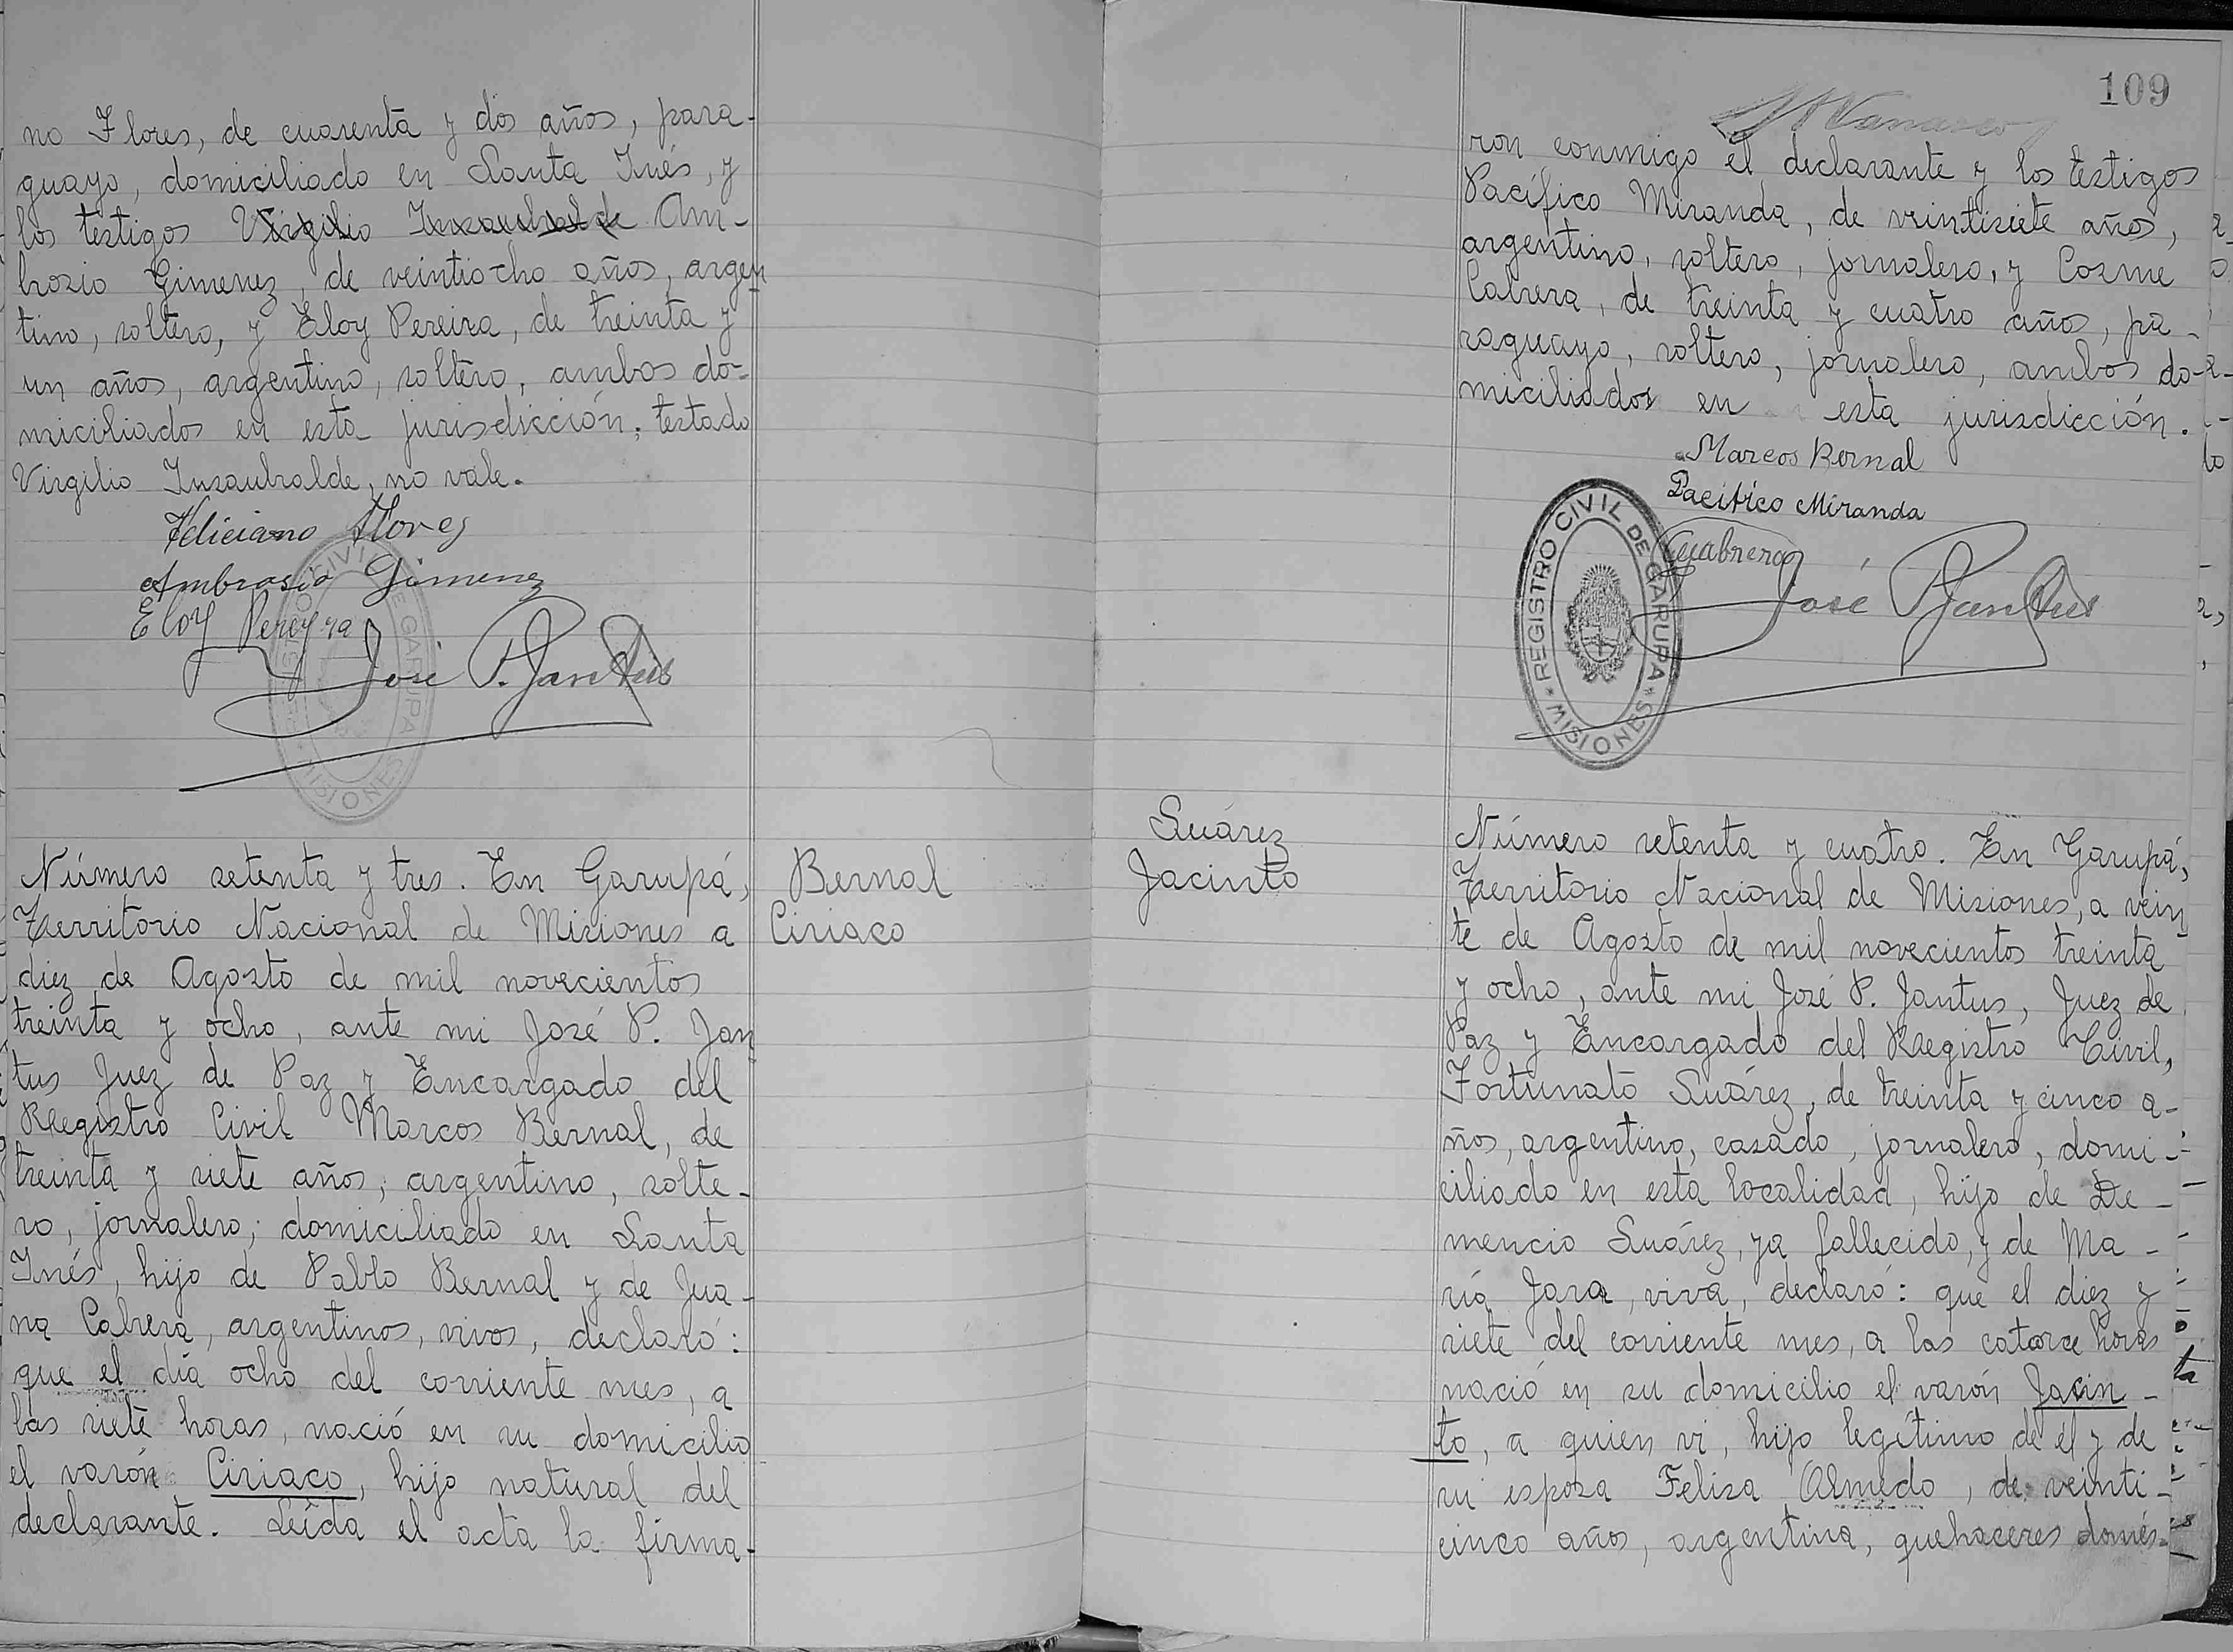 no Flores, de cuarenta y dos años, para-
guayo, domiciliado en Santa Inés, y
los testigos Virgilio Insaubralde Am-
brosio Gimenez, de veintiocho años, argen
tino, soltero, y Eloy Pereira, de treinta y
un años, argentino, soltero, ambos do-
miciliados en esta jurisdicción; testado
Virgilio Insaubralde, no vale.
Feliciano Flores
Ambrosio Gimenez
Eloy Pereyra
José P. Jantus
Número setenta y tres. En Garupá,
Territorio Nacional de Misiones a
diez de Agosto de mil novecientos
treinta y ocho, ante mi José P. Jan
tus Juez de Paz y Encargado del
Registro Civil Marcos Bernal, de
treinta y siete años, argentino, solte-
ro, jornalero; domiciliado en Santa
Inés, hijo de Pablo Bernal y de Jua-
na Cabrera, argentinos, vivos, declaró:
que el día ocho del corriente mes, a
las siete horas, nació en su domicilio
el varón Ciriaco, hijo natural del
declarante. Leída el acta la firma-
Bernal
Ciriaco
109
ron conmigo el declarante y los testigos
Pacífico Miranda, de veintisiete años,
argentino, soltero, jornalero, y Cosme
Cabrera, de treinta y cuatro años, pa-
raguayo, soltero, jornalero, ambos do-
miciliados en esta jurisdicción.
Marcos Bernal
Pacifico Miranda
José P. Jantus
REGISTRO CIVIL DE GARUPA
MISIONES
Suárez
Jacinto
Número setenta y cuatro. En Garupá,
Territorio Nacional de Misiones, a vein
te de Agosto de mil novecientos treinta
y ocho, ante mi José P. Jantus, Juez de
Paz y Encargado del Registro Civil,
Fortunato Suárez, de treinta y cinco a-
ños, argentino, casado, jornalero, domi-
ciliado en esta localidad, hijo de De-
mencio Suárez, ya fallecido, y de Ma-
ría Jara, viva, declaró: que el diez y
siete del corriente mes, a las catorce horas
nació en su domicilio el varón Jacin-
to, a quien vi, hijo legítimo de él y de
su esposa Felisa Almedo, de veinti-
cinco años, argentina, quehaceres domés-